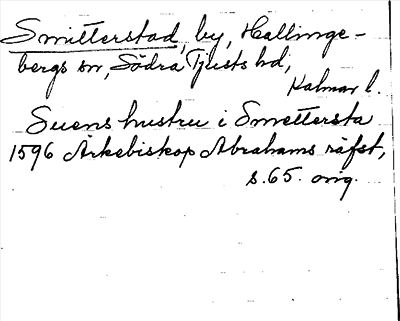 Smitterstad, by, Hallinge-
bergs sn, Södra Tjusts hd,
Kalmar l.
Suens hustru i Smettersta
1596 Ärkebiskop Abrahams räfst,
s. 65. orig.